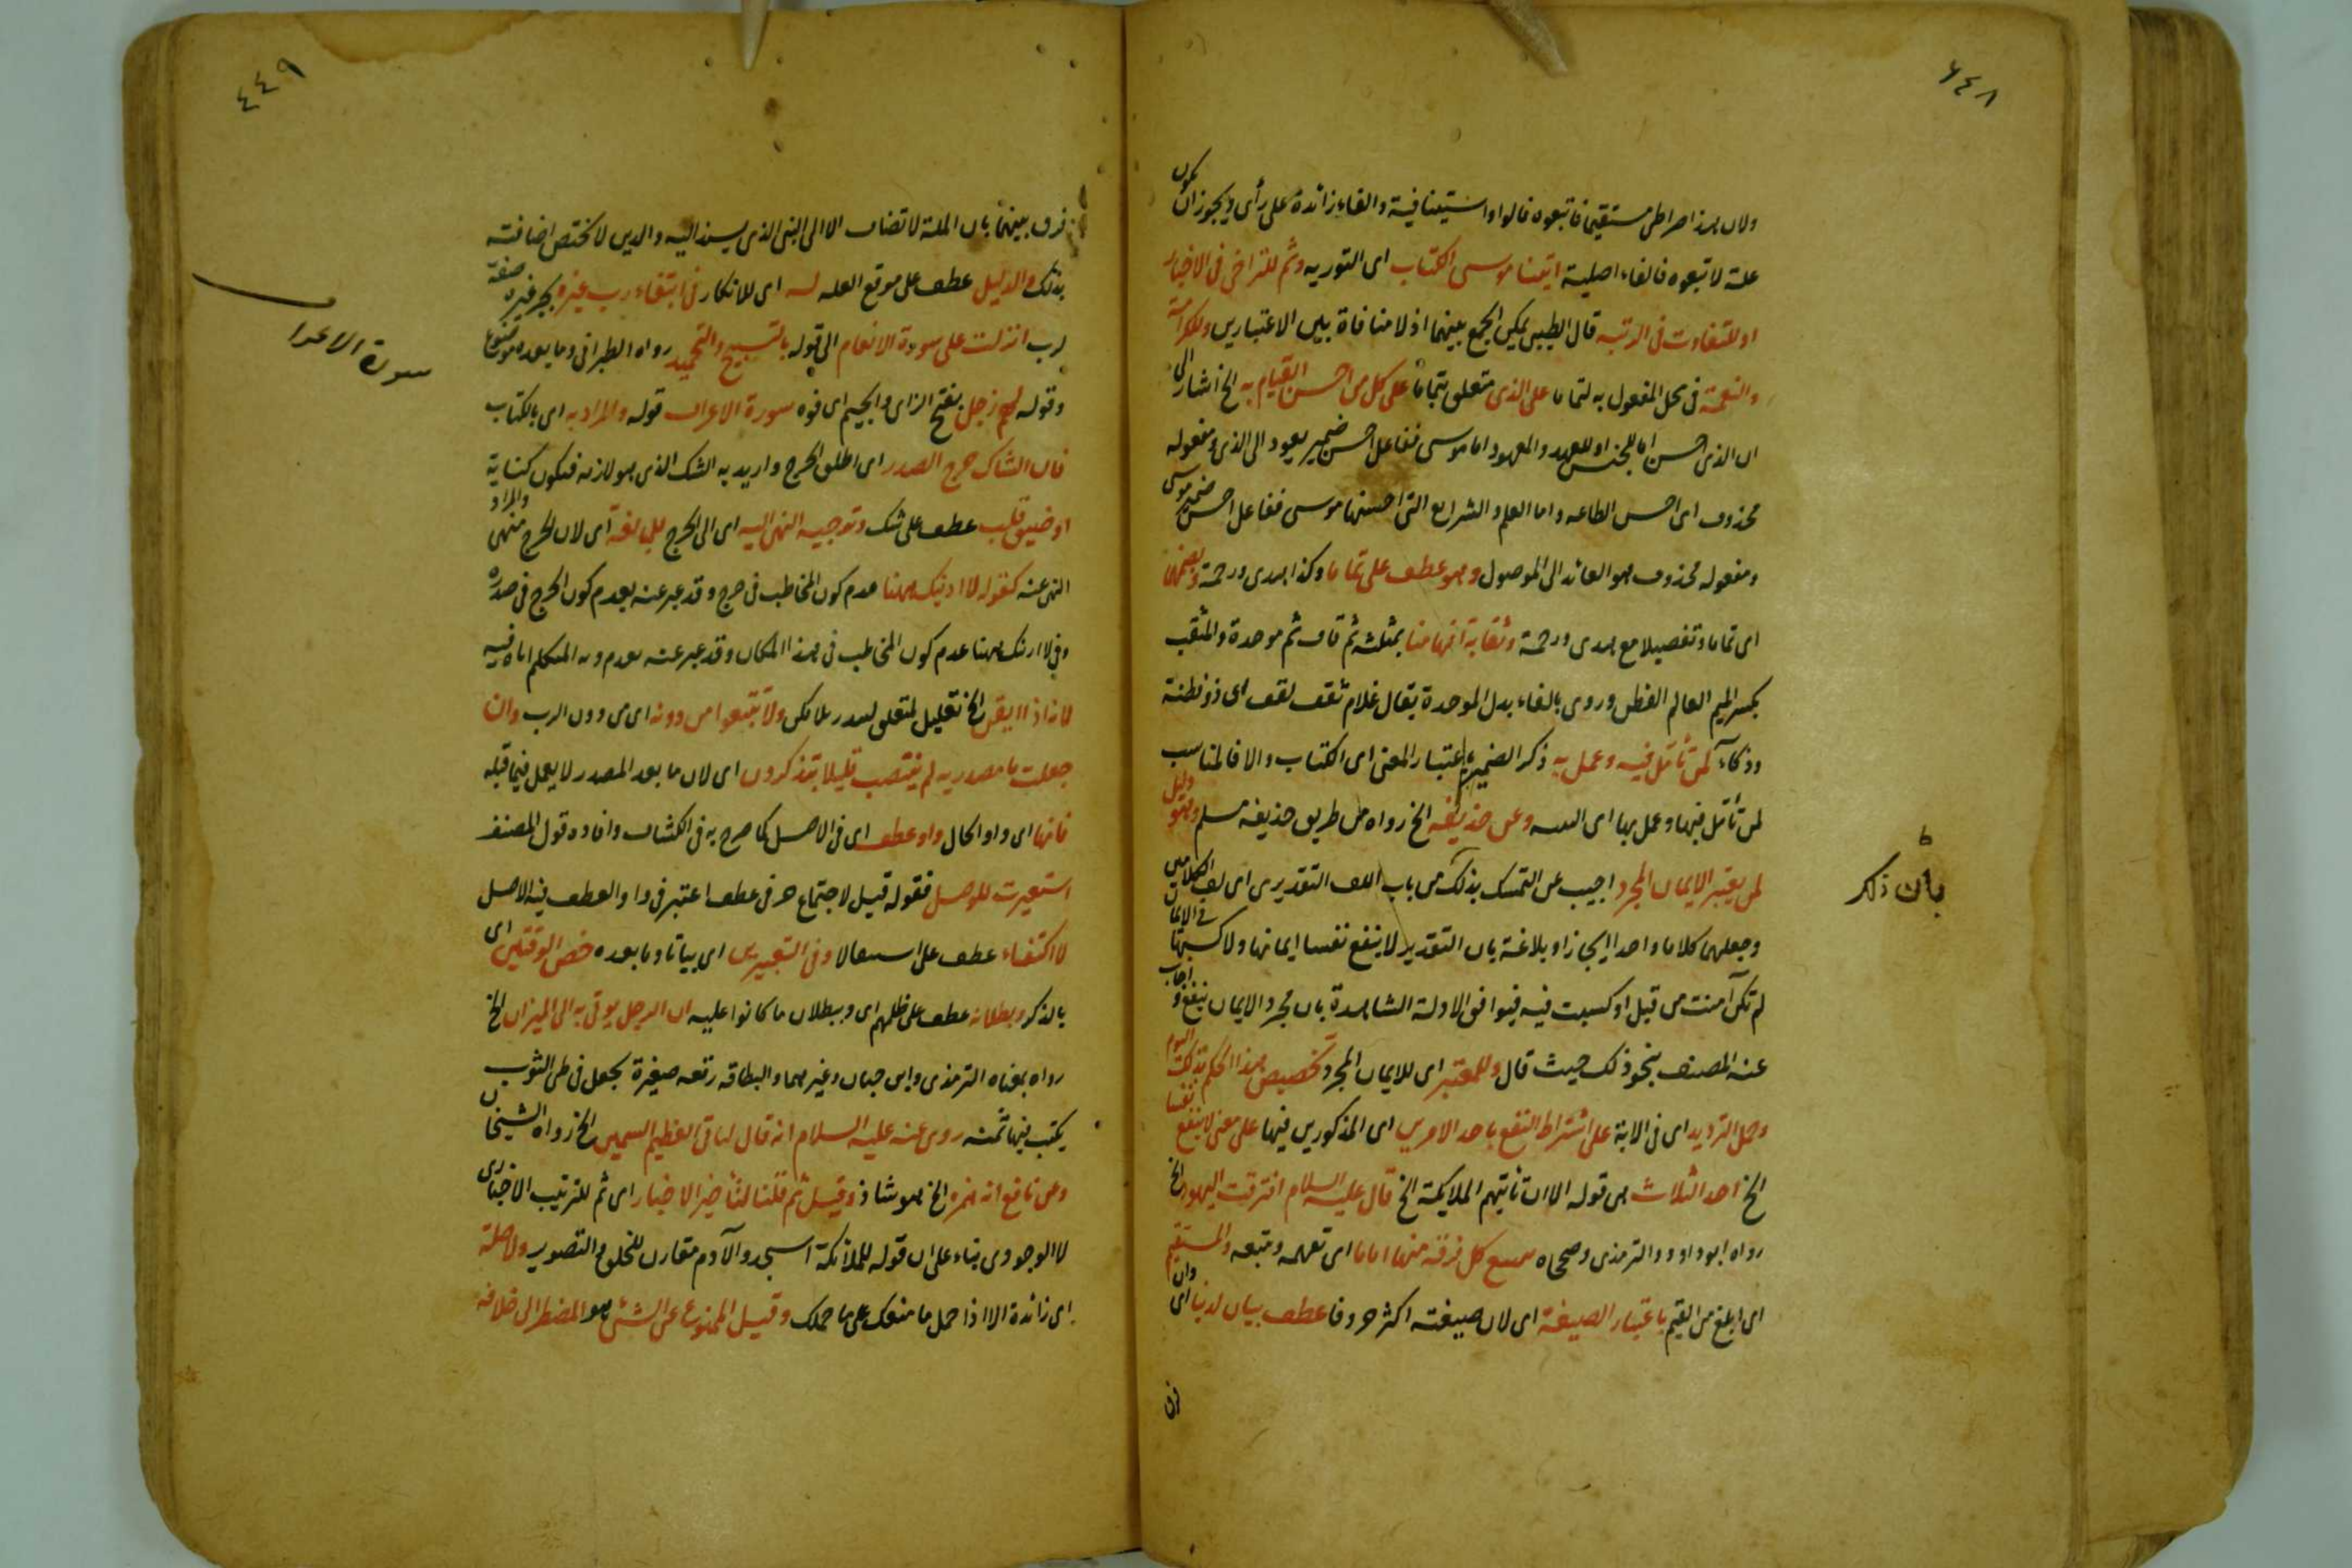 ٤٤٨
ولان هذا صراطى مستقيما فاتبعوه فالواو استينافية والفاء زائدة على رأى ويجوز ان يكون
علة لاتبعوه فالفاء اصلية اتينا موسى الكتاب اى التورية وثم للتراخى فى الاخبار
او للتفاوت فى الرتبه قال الطيبى يمكن الجمع بينهما اذ لا منافاة بين الاعتبارين وللكرامة
والنعمة فى محل المفعول به لتماما على الذى متعلق بتماما على كل من احسن القيام به الخ اشار الى
ان الذى احسن اما للجنس او للعهد والمعهود اما موسى ففاعل احسن ضمير يعود الى الذى ومفعوله
محذوف اى احسن الطاعه واما العلم والشرايع التى احسنها موسى ففاعل احسن ضمير موسى
ومفعوله محذوف هو العائد الى الموصول وهو عطف على تماما وكذا هدى ورحمة
اى تماما وتفصيلا مع هدى ورحمة وثقابة افهامنا بمثلثه ثم قاف ثم موحدة والمثقب
بكسر الميم العالم الفطن وروى بالفاء بدل الموحدة يقال غلام ثقف لقف اى ذو فطنة
وذكآء لمن تأمل فيه وعمل به ذكر الضمير باعتبار المعنى اى الكتاب والا فالمناسب
لمن تأمل فيها وعمل بها وعن حذيفه الخ رواه من طريق حذيفة مسلم وهو دليل
لمن يعتبر الايمان المجرد اجيب عن التمسك بذلك من باب اللف التقديرى اى لف الكلامين
وجعلهما كلاما واحدا ايجازا وبلاغة بان التقدير لا ينفع نفسا ايمانها ولا كسبها فى الايمان
لم تكن آمنت من قبل او كسبت فيه فيوافق الادلة الشاهدة بان مجرد الايمان ينفع و اجاب
عنه المصنف بنحو ذلك حيث قال وللمعتبر اى للايمان المجرد تخصيص هذا الحكم بذلك اليوم
وحمل الترديد اى فى الاية على اشتراط النفع باحد الامرين اى المذكورين فيها على معنى لا ينفع نفسا
الخ احد الثلاث من قوله الا ان تأتيهم الملايكة الخ قال عليه السلام افترقت اليهود الخ
رواه ابو داود والترمذى وصححاه كل فرقة منها اماما اى تعهده وتتبعه والمستقيم
اى ابلغ من القيم باعتبار الصيغة اى لان صيغته اكثر حروفا عطف بيان لدينا اى وان
فرق
بأن ذكر
٤٤٩
فرق بينهما بان الملة لا تضاف الا الى النبى الذى يسند اليه والدين لا يختص اضافته
بذلك والدليل عطف على موقع العله له اى للانكار فى ابتغاء رب غيره بجر غيره صفة
لرب انزلت على سورة الانعام الى قوله بالتسبيح والتحميد رواه الطبرانى وما بعده موضوع
وقوله لهم زجل بفتح الزاى والجيم اى قوه سورة الاعراف قوله والمراد به اى بالكتاب
فان الشاك حرج الصدر اى اطلق الحرج واريد به الشك الذى هو لازمه فيكون كناية
او ضيق قلب عطف على شك وتوجيه النهى اليه اى الى الحرج للمبالغة اى لان الحرج منهى والمراد
النهى عنه كقوله لا ارينك ههنا عدم كون المخاطب فى حرج وقد عبر عنه بعدم كون الحرج فى صدره
وفى لا ارينك ههنا عدم كون المخاطب فى هذا المكان وقد عبر عنه بعدم المتكلم اياه فيه
لانه اذا ايقن الخ تعليل لمتعلق لتنذر بلا يكن ولا تتبعوا من دونه اى من دون الرب وان
جعلت ما مصدريه لم ينتصب قليلا بتذكرون اى لان ما بعد المصدر لا يعمل فيما قبله
فانها اى واو الحال واو عطف اى فى الاصل كما صرح به فى الكشاف وافاده قول المصنف
استعيرت للوصل فقوله قيل لاجتماع حرفى عطف اعتبر فى واو العطف فيه الاصل
لا اكتفاء عطف على استثقالا وفى التعبيرين اى بياتا وما بعده خص الوقتين اى
بالذكر وبطلانه عطف على ظلمهم اى وببطلان ما كانوا عليه ان الرجل يوتى به الى الميزان الخ
رواه بمعناه الترمذى وابن حبان وغيرهما والبطاقه رقعه صغيرة تجعل فى طى الثوب
يكتب فيها ثمنه روى عنه عليه السلام انه قال لياتى العظيم السمين الخ رواه الشيخان
وعن نافع انه همزه الخ هو شاذ وقيل ثم قلنا لتأخير الاخبار اى ثم للترتيب الاخبارى
لا الوجودى بناء على ان قوله للملائكة اسجدوا لآدم مقارن للخلق والتصوير ولا صلة
اى زائدة الا اذا حمل ما منعك على ما حملك وقيل الممنوع عن الشئ هو المضطر الى خلافه
سورة الاعراف